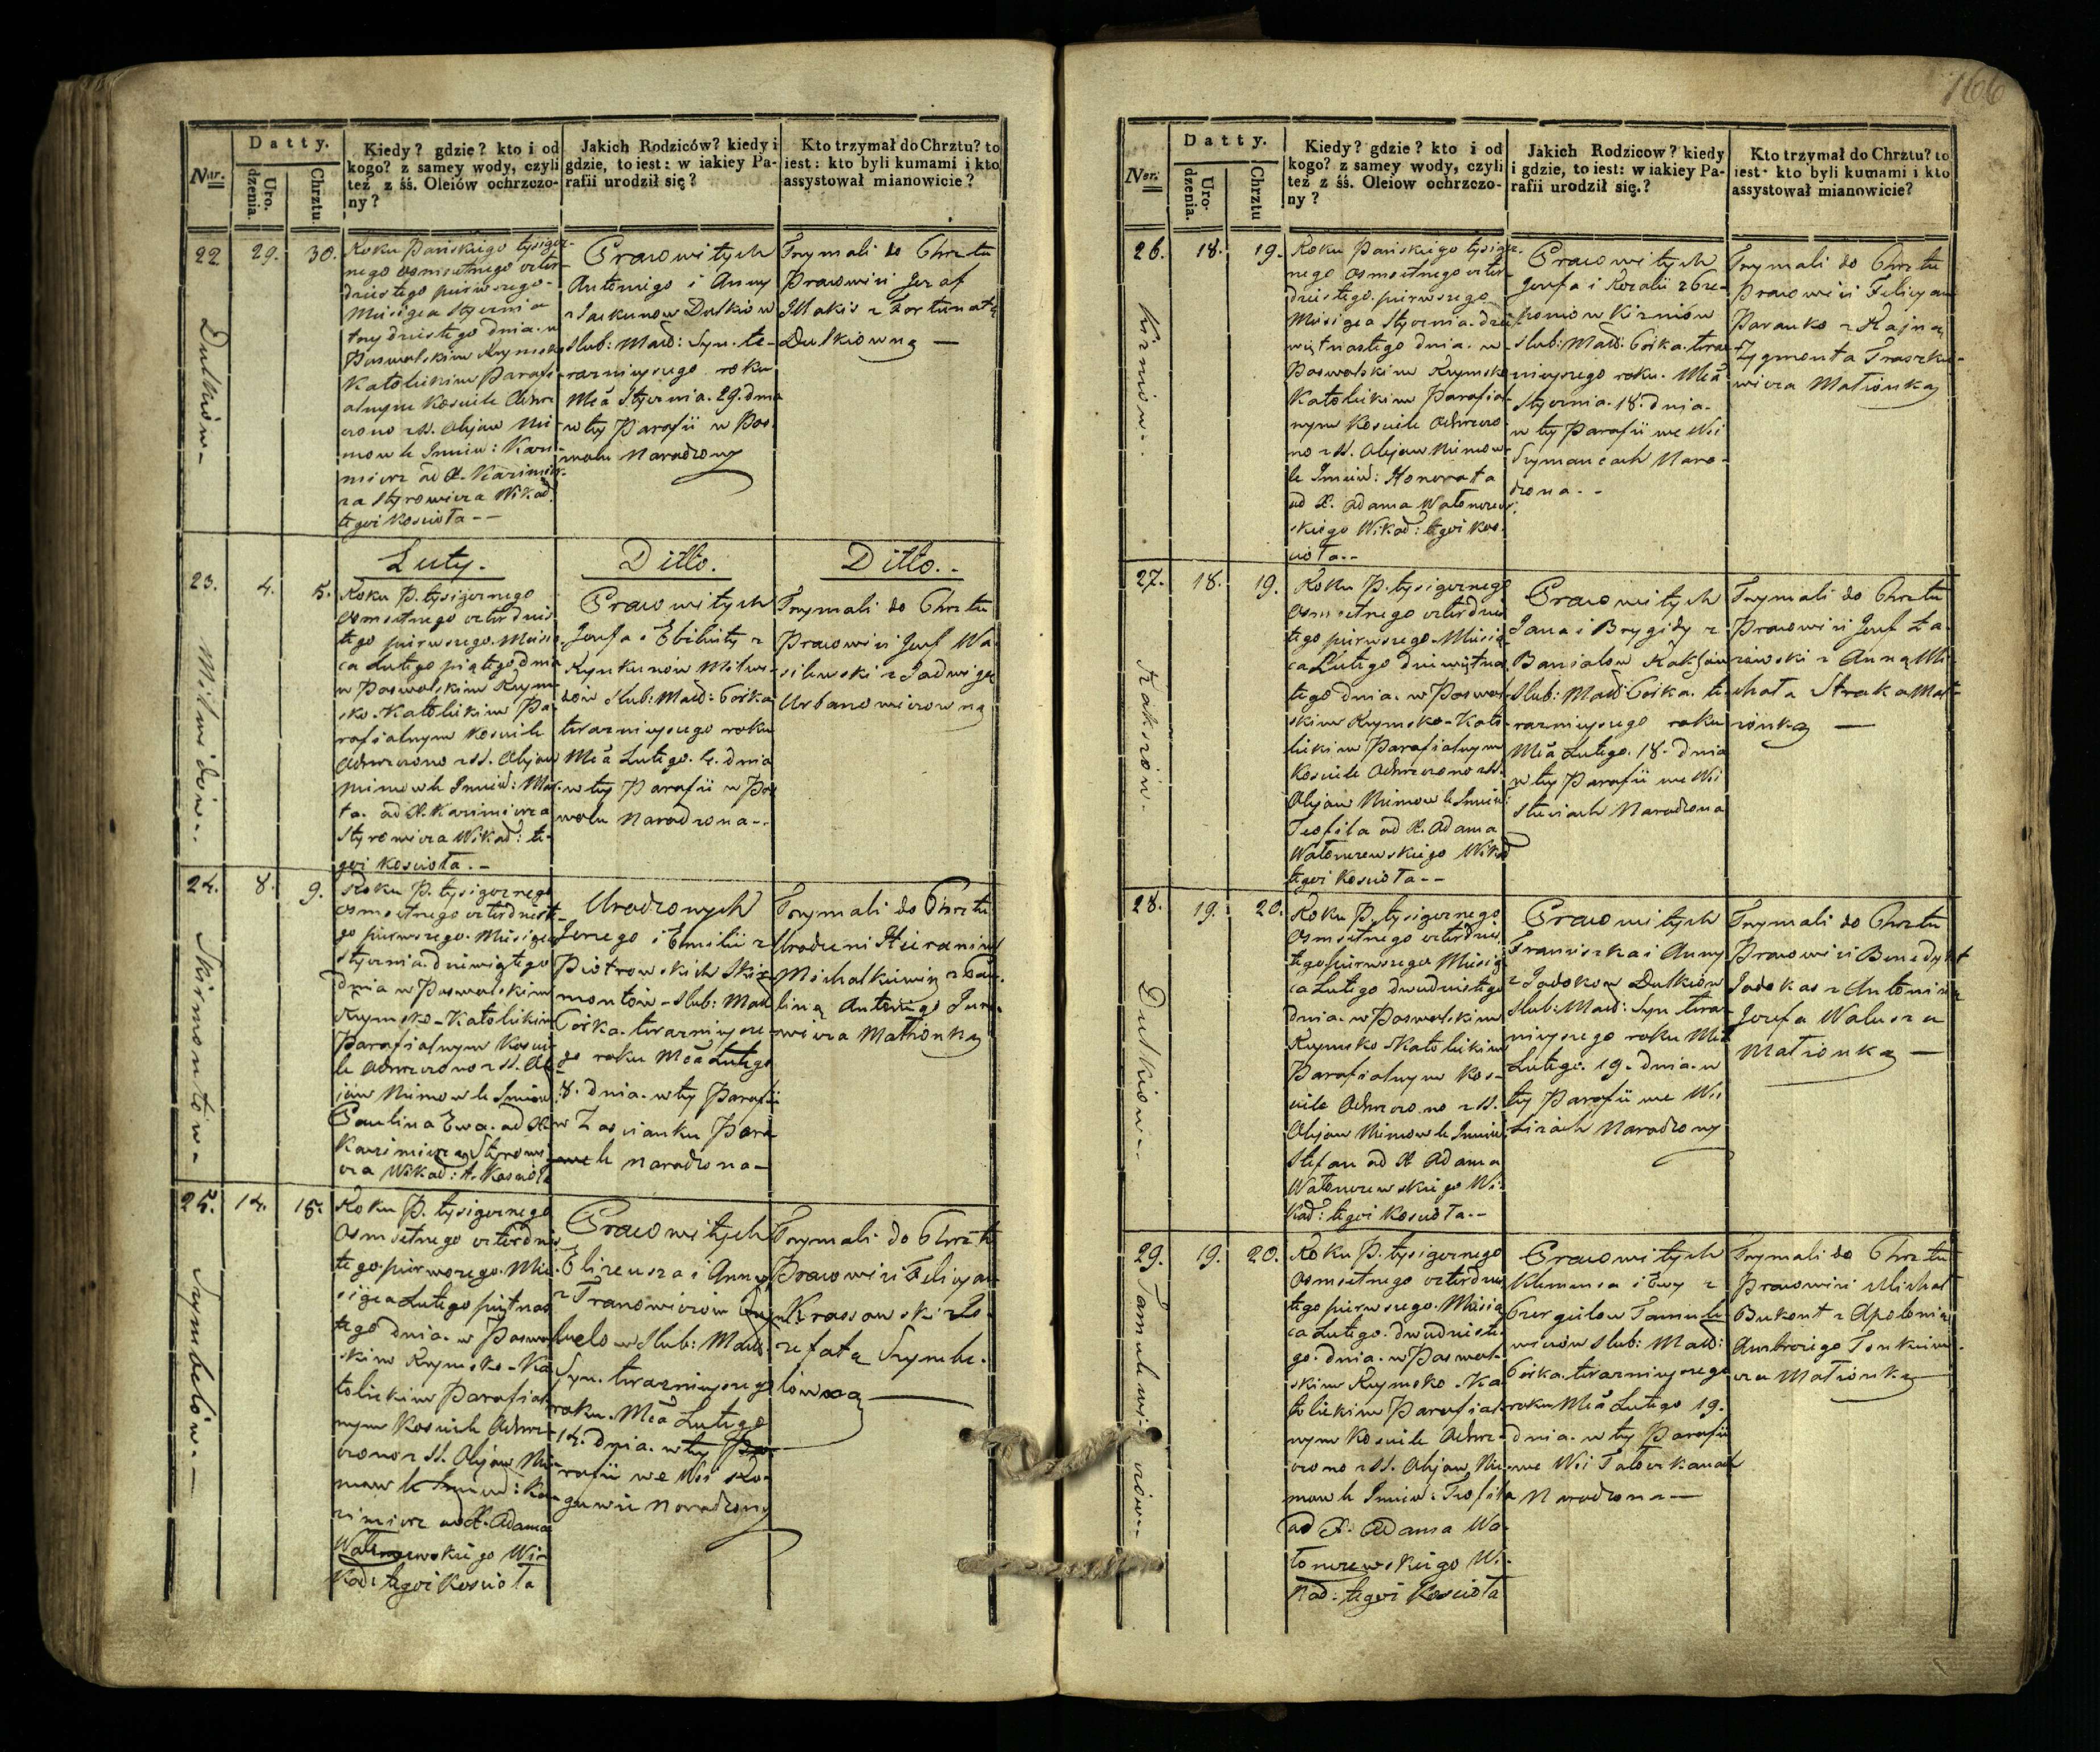 166
Datty.
Kiedy? gdzie? kto i od
kogo? z samey wody, czyli
też z śś. Oleiów ochrzczo-
ny?
Jakich Rodziców? kiedy i
gdzie, to iest: w iakiey Pa-
rafii urodził się?
Kto trzymał do Chrztu? to
iest: kto byli kumami i kto
assystował mianowicie?
Nar.
Uro-
dzenia.
Chrztu.
22. 29. 30.
Dulkiów
Roku Pańskiego tysiącz-
nego osmsetnego czter-
dziestego pierwszego
Miesiąca Stycznia
trzydziestego dnia w
Poswolskim Rzymsko
Katolickim Parafi-
alnym Kosciele Ochrz-
czono z SS. Olejów Nie
mowle Imien: Kazi-
mierz od X. Kazimie-
rza Styrowicza Wikad:
tegoi Kosciola --
Prawowitych
Antoniego i Anny
z Dulkiów
slub: Małż: Syn te-
razniejszego roku
Mca Stycznia 29. dnia
w tey Parafii w Pos-
wolu Narodzony
Trzymali do Chrztu
Prawowici Jozef
z Fortunatą
Dulkiowną —
Luty.
Ditto.
Ditto.
23. 4. 5.
Milwidow
Roku P. tysiącznego
osmsetnego czterdzies
tego pierwszego Miesią
ca Lutego piątego dnia
w Poswolskim Rzym-
sko-Katolickim Pa-
rafialnym Kosciele
Ochrzczono z SS. Olejów
Niemowle Imien: Mar-
ta od X. Kazimierza
Styrowicza Wikad: te-
goi Kosciola. --
Prawowitych
Jozefa i z
Milwi-
dów slub: Małż: Corka
terazniejszego roku
Mca Lutego 4. dnia
w tey Parafii w Pos
wolu Narodzona --
Trzymali do Chrztu
Prawowici Jozef Wa
silewski z Jadwigą
Urbanowiczowną
24. 8. 9.
Skirmontów
Roku P. tysiącznego
osmsetnego czterdziest-
go pierwszego Miesiąca
Stycznia dziewiątego
dnia w Poswolskim
Rzymsko-Katolickim
Parafialnym Koscie-
le Ochrzczono z SS. Ole-
jów Niemowle Imion
Paulina Ewa od X
Kazimierza Styrowi-
cza Wikad: t. Kosciola
Urodzonych
Jerzego i Emilii z
Piotrowskich Skir
montów slub: Małż
Corka terazniejsze-
go roku Mca Lutego
8. dnia w tey Parafii
w Zascianku
Narodzona —
Trzymali do Chrztu
Urodzeni Hieronim
Michalkiewicz z Pau-
liną Antoniego Jure-
wicza Małżonką
25. 14. 15.
Szymbelów
Roku P. tysiącznego
osmsetnego czterdzies
tego pierwszego Mie-
siąca Lutego piętnas
tego dnia w Poswol
skim Rzymsko-Ka
tolickim Parafial
nym Kosciele Ochrz-
czono z SS. Olejów Nie-
mowle Imien: Ka-
zimierz od X. Adama
Wikad: tegoi Kosciola
Prawowitych
Elizeusza i Anny
z Franowiczów Szym
below slub: Małż:
Syn terazniejszego
roku Mca Lutego
14. dnia w tey Pa-
rafii we Wsi
Narodzony
Trzymali do Chrztu
Prawowici Felicyan
Krassowski z Jo-
zefatą Szymbe-
lówną —
Datty.
Kiedy? gdzie? kto i od
kogo? z samey wody, czyli
też z śś. Oleiow ochrzczo-
ny?
Jakich Rodzicow? kiedy
i gdzie, to iest: w iakiey Pa-
rafii urodził się.?
Kto trzymał do Chrztu? to
iest: kto byli kumami i kto
assystował mianowicie?
Ner.
Uro-
dzenia.
Chrztu
26. 18. 19.
Kirniów
Roku Pańskiego tysiącz-
nego osmsetnego czter-
dziestego pierwszego
Miesiąca Stycznia dzie
więtnastego dnia w
Poswolskim Rzymsko
Katolickim Parafial-
nym Kosciele Ochrzczo-
no z SS. Olejów Niemow-
le Imien: Honorata
od X. Adama
skiego Wikad: tegoi Kos-
ciola --
Prawowitych
Jozefa i Rozalii z
Kirniów
slub: Małż: Corka teraz-
niejszego roku Mca
Stycznia 18. dnia
w tey Parafii we Wsi
Szymancach Naro-
dzona --
Trzymali do Chrztu
Prawowici Felicyan
z
Zygmonta Traszke-
wicza Małżonką
27. 18. 19.
Kaksżów
Roku P. tysiącznego
osmsetnego czterdzies
tego pierwszego Miesią
ca Lutego dziewiętnas
tego dnia w Poswol
skim Rzymsko-Kato
lickim Parafialnym
Kosciele Ochrzczono z SS.
Olejów Niemowle Imien
Teofila od X. Adama
Wikad
tegoi Kosciola --
Prawowitych
Jana i Brygidy z
slub: Małż: Corka te-
razniejszego roku
Mca Lutego 18. dnia
w tey Parafii we Wsi
Narodzona
Trzymali do Chrztu
Prawowici Jozef Ła-
z Anną Mi-
chała Straka Mał-
żonką —
28. 19. 20.
Dulkiow
Roku P. tysiącznego
osmsetnego czterdzies
tego pierwszego Miesią
ca Lutego dwudziestego
dnia w Poswolskim
Rzymsko-Katolickim
Parafialnym Kos-
ciele Ochrzczono z SS.
Olejów Niemowle Imien
Stefan od X Adama
Wi-
kad: tegoi Kosciola --
Prawowitych
Franciszka i Anny
z Jadokow Dulkiów
slub: Małż: Syn teraz-
niejszego roku Mca
Lutego 19. dnia w
tey Parafii we Wsi
Narodzony
Trzymali do Chrztu
Prawowici Benedykt
Jadokas z Antoniną
Jozefa
Małżonką —
29. 19. 20.
Tamulewi-
czów
Roku P. tysiącznego
osmsetnego czterdzies
tego pierwszego Miesią
ca Lutego dwudzieste-
go dnia w Poswol-
skim Rzymsko-Ka
tolickim Parafial-
nym Kosciele Ochrz-
czono z SS. Olejów Nie-
mowle Imien: Teofila
od X. Adama
Wi-
kad: tegoi Kosciola
Prawowitych
Klemensa i Ewy z
Tamule-
wiczów slub: Małż:
Corka terazniejszego
roku Mca Lutego 19.
dnia w tey Parafii
we Wsi
Narodzona —
Trzymali do Chrztu
Prawowici Michał
Bukont z Apolonią
Ambrożego
Małżonką